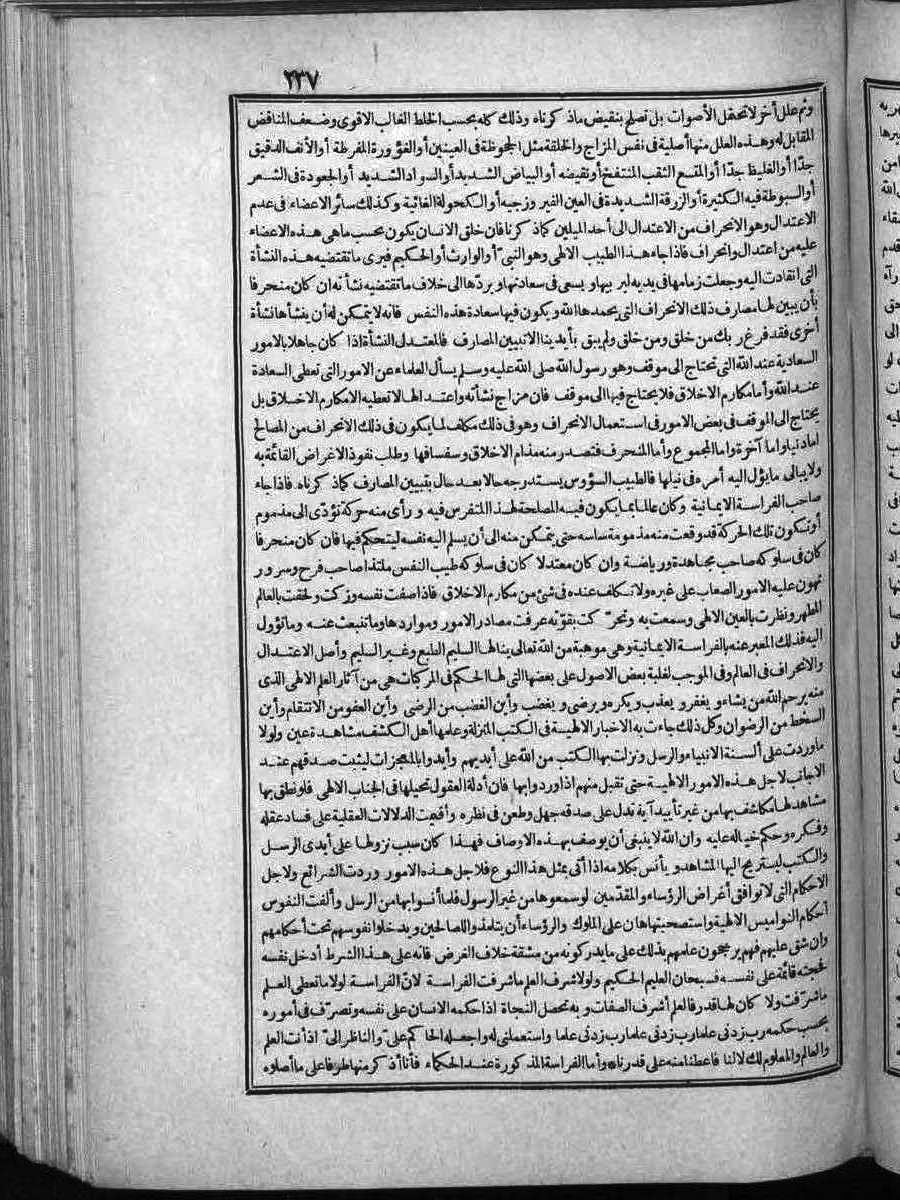 ٢٣٧
وثم علل أخر لا تحتمل الأصوات بل تصلح بنقيض ماذكرناه وذلك كله بحسب الخلط الغالب الاقوى وضعف المناقض
المقابل له وهذه العلل منها أصلية فى نفس المزاج والخلقة مثل الجحوظة فى العينين أو الغؤورة المفرطة أو الأنف الدقيق
جدّا أو الغليظ جدّا أو المقسع الثقب المنتفخ أو نقيضه أو البياض الشديد أو السواد الشديد أو الجعودة فى الشعر
أو السبوطة فيه الكثيرة أو الزرقة الشديدة فى العين الفير وزجيه أو الكحولة الغائية وكذلك سائر الاعضاء فى عدم
الاعتدال وهو الانحراف من الاعتدال الى أحد الميلين كماذكرنا فان خلق الانسان يكون بحسب ماهى هذه الاعضاء
عليه من اعتدال وانحراف فاذا جاء هذا الطبيب الالهى وهو النبىّ أو الوارث أو الحكيم فيرى ما تقتضيه هذه النشأة
التى انقادت اليه وجعلت زمامها فى يديه ليربيها ويسعى فى سعادتها ويردّها الى خلاف ما تقتضيه نشأته ان كان منحرفا
بأن يبين لها مصارف ذلك الانحراف التى يحمدها الله ويكون فيها سعادة هذه النفس فانه لا يتمكن له أن ينشأها نشأة
أخرى فقد فرغ ربك من خلق ومن خلق ولم يبق بأيدينا الا تبيين المصارف فالمعتدل النشأة اذا كان جاهلا بالامور
السعادية عند الله التى تحتاج الى موقف وهو رسول الله صلى الله عليه وسلم يسأل العلماء عن الامور التى تعطى السعادة
عند الله وأما مكارم الاخلاق فلا يحتاج فيها الى موقف فان مزاج نشأته واعتدالها لا تعطيه الا مكارم الاخلاق بل
يحتاج الى الموقف فى بعض الامور فى استعمال الانحراف وهو فى ذلك مكلف لما يكون فى ذلك الانحراف من المصالح
اما دنيا واما آخرة واما المجموع وأما المنحرف فتصدر منه مذام الاخلاق وسفسافها وطلب نفوذ الاغراض القائمة به
ولا يبالى ما يؤل اليه أمره فى نيلها فالطبيب السؤوس يستدرجه حالا بعد حال بتبيين المصارف كماذكرناه فاذا جاء
صاحب الفراسة الايمانية وكان عالما بما يكون فيه المصلحة لهذا المتفرس فيه ورأى منه حركة تؤدّى الى مذموم
أو تكون تلك الحركة قد وقعت منه مذمومة ساسه حتى يتمكن منه الى أن يسلم اليه نفسه ليتحكم فيها فان كان منحرفا
كان فى سلوكه صاحب مجاهدة ورياضة وان كان معتدلا كان فى سلوكه طيب النفس ملتذا صاحب فرح وسرور
تهون عليه الامور الصعاب على غيره ولا تكلف عنده فى شئ من مكارم الاخلاق فاذا صفت نفسه وزكت ولحقت بالعالم
المطهر ونظرت بالعين الالهى وسمعت به وتحرّكت بقوّته عرفت مصادر الامور ومواردها وما تنبعث عنه وما تؤول
اليه فذلك المعبر عنه بالفراسة الايمانية وهى موهبة من الله تعالى ينالها السليم الطبع وغير السليم وأصل الاعتدال
والانحراف فى العالم وفى الموجب لغلبة بعض الاصول على بعضها التى لها الحكم فى المركبات هى من آثار العلم الالهى الذى
منه يرحم الله من يشاء ويغفر ويعذب ويكره ويرضى ويغضب وأين الغضب من الرضى وأين العفو من الانتقام وأين
السخط من الرضوان وكل ذلك جاءت به الاخبار الالهية فى الكتب المنزلة وعلمها أهل الكشف مشاهدة عين ولولا
ما وردت على ألسنة الانبياء والرسل ونزلت بها الكتب من الله على أيديهم وأيدوا بالمعجزات ليثبت صدقهم عند
الاجانب لاجل هذه الامور الالهية حتى تقبل منهم اذا وردوا بها فان أدلة العقول تحيلها فى الجناب الالهى فلو نطق بها
مشاهد لها مكاشف بها من غير تأييد آية تدل على صدقه جهل وطعن فى نظره وأقيمت الدلالات العقلية على فساد عقله
وفكره وحكم خياله عليه وان الله لا ينبغى أن يوصف بهذه الاوصاف فهذا كان سبب نزولها على أيدى الرسل
والكتب ليستريح اليها المشاهد ويأنس بكلامه اذا أتى بمثل هذا النوع فلاجل هذه الامور وردت الشرائع ولاجل
الاحكام التى لا توافق أغراض الرؤساء والمقدّمين لو سمعوها من غير الرسول فلما أنسوا بها من الرسل وألفت النفوس
أحكام النواميس الالهية واستصحبتها هان على الملوك والرؤساء أن يتلمذوا للصالحين ويدخلوا نفوسهم تحت أحكامهم
وان شق عليهم فهم يرجحون علمهم بذلك على ما يدركونه من مشقة خلاف الغرض فانه على هذا الشرط أدخل نفسه
فحجته قائمة على نفسه فسبحان العليم الحكيم ولولا شرف العلم ما شرفت الفراسة لانّ الفراسة لولا ما تعطى العلم
ما شرفت ولا كان لها قدر فالعلم أشرف الصفات وبه تحصل النجاة اذا حكمه الانسان على نفسه وتصرّف فى أموره
بحسب حكمه رب زدنى علما رب زدنى علما رب زدنى علما واستعملنى له واجعله الحاكم علىّ والناظر الىّ اذ أنت العلم
والعالم والمعلوم لك لا لنا فاعطنا منه على قدرنا وأما الفراسة المذكورة عند الحكماء فأنا أذكر منها طرفا على ما أصلوه